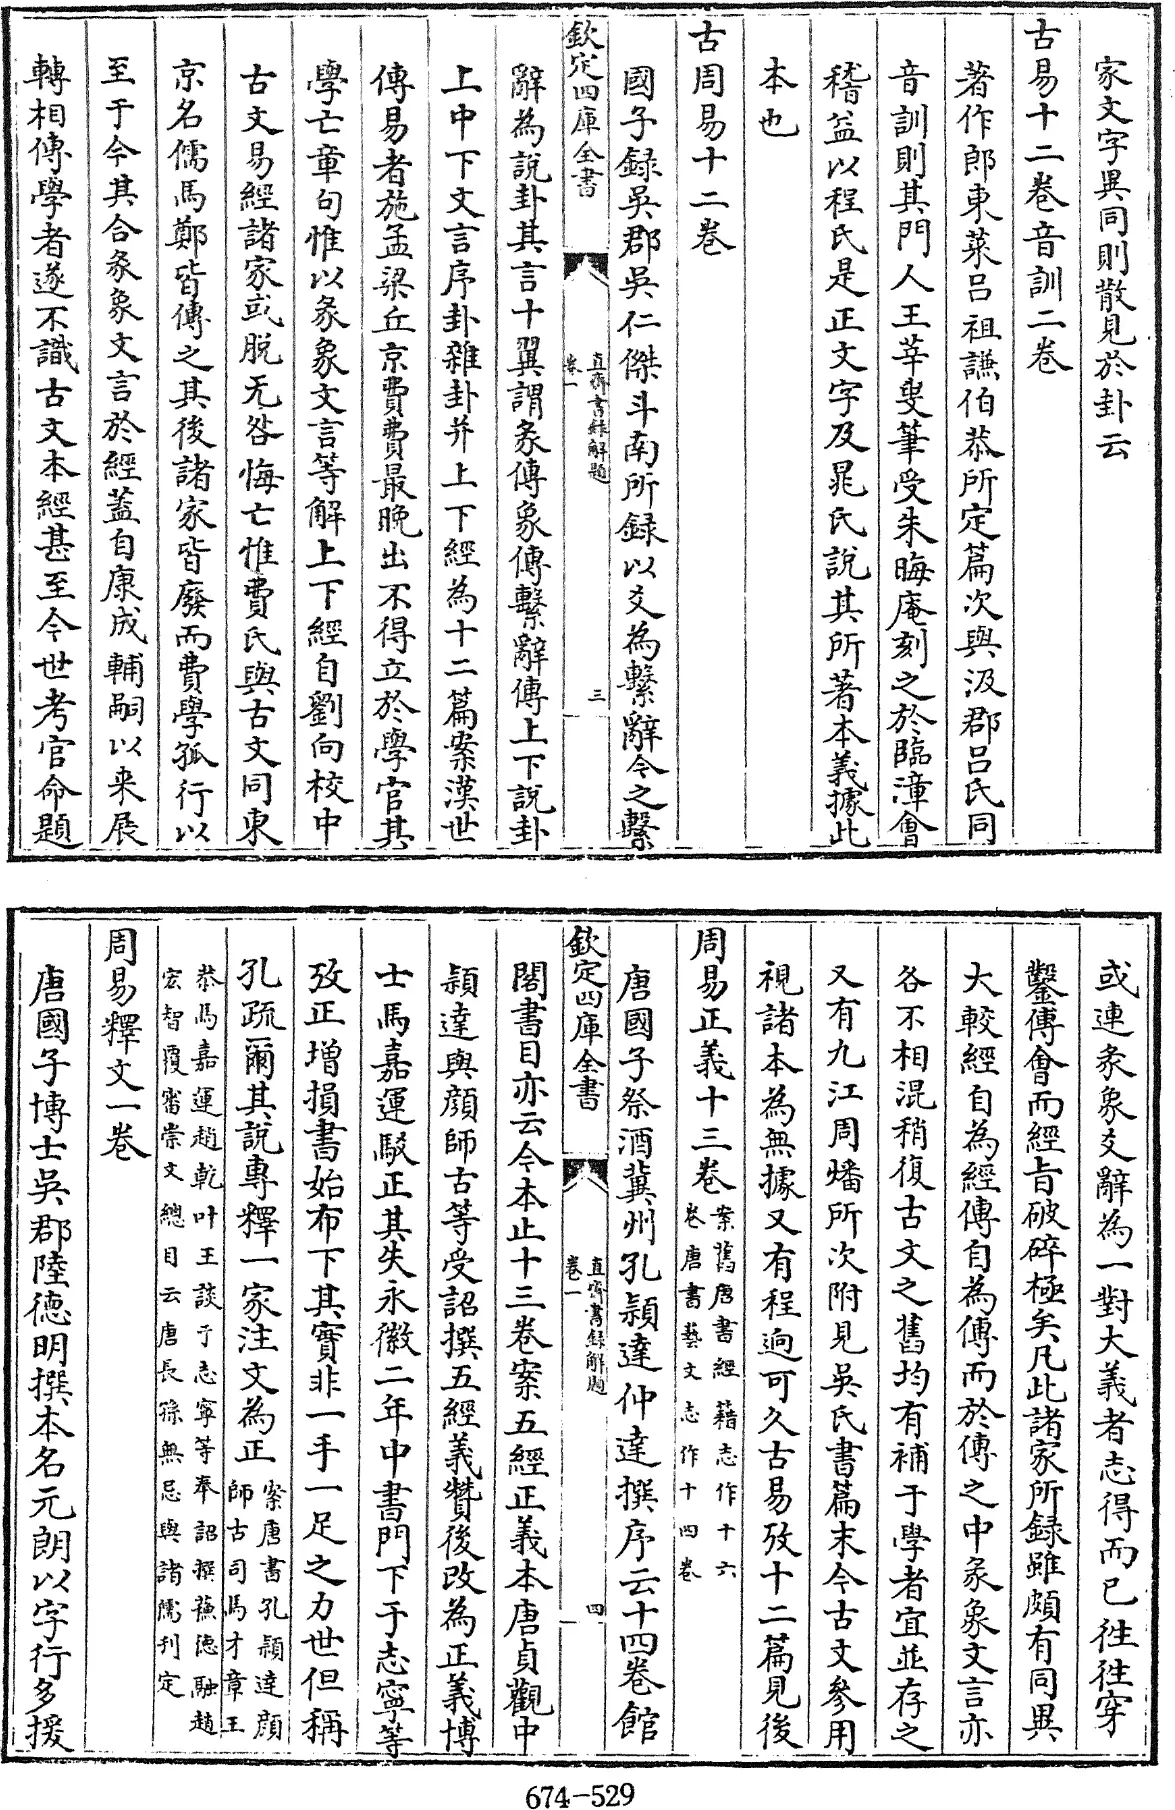 家文字異同則散見於卦云
古易十二卷音訓二卷
著作郎東萊呂祖謙伯恭所定篇次與汲郡呂氏同
音訓則其門人王莘叟筆受朱晦庵刻之於臨漳會
稽益以程氏是正文字及晁氏說其所著本義據此
本也
古周易十二卷
國子録吳郡吳仁傑斗南所録以爻為繫辭今之繫
欽定四庫全書
直齋書録解題
卷一
三
辭為說卦其言十翼謂彖傳象傳繫辭傳上下說卦
上中下文言序卦雜卦并上下經為十二篇案漢世
傳易者施孟梁丘京費費最晚出不得立於學官其
學亡章句惟以彖象文言等解上下經自劉向校中
古文易經諸家或脱无咎悔亡惟費氏與古文同東
京名儒馬鄭皆傳之其後諸家皆廢而費學孤行以
至于今其合彖象文言於經蓋自康成輔嗣以来展
轉相傳學者遂不識古文本經甚至今世考官命題
或連彖象爻辭為一對大義者志得而已徃徃穿
鑿傅會而經旨破碎極矣凡此諸家所録雖頗有同異
大較經自為經傳自為傳而於傳之中彖象文言亦
各不相混稍復古文之舊均有補于學者宜並存之
又有九江周燔所次附見吳氏書篇末今古文參用
視諸本為無據又有程迥可久古易攷十二篇見後
周易正義十三卷
案舊唐書經籍志作十六
卷唐書藝文志作十四卷
唐國子祭酒冀州孔穎達仲達撰序云十四卷館
欽定四庫全書
直齋書録解題
卷一
四
閣書目亦云今本止十三卷案五經正義本唐貞觀中
穎達與顔師古等受詔撰五經義贊後改為正義博
士馬嘉運駁正其失永徽二年中書門下于志寧等
攷正增損書始布下其實非一手一足之力世但稱
孔疏爾其說專釋一家注文為正
案唐書孔穎達顔
師古司馬才章王
恭馬嘉運趙乾叶王談于志寧等奉詔撰蘇德融趙
宏智覆審崇文總目云唐長孫無忌與諸儒刊定
周易釋文一卷
唐國子博士吳郡陸德明撰本名元朗以字行多援
674-529